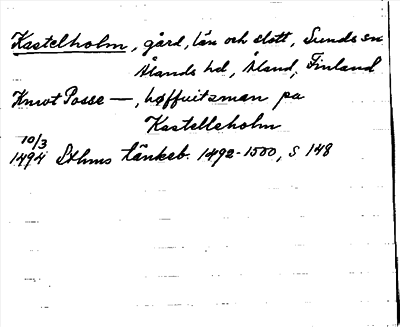 Kastelholm, gård, län och slott, Sunds sn
Ålands hd, Åland, Finland
Knwt Posse —, høffuitzman pa
Kastelleholm
10/3
1494 Sthms tänkeb. 1492-1500, s 148